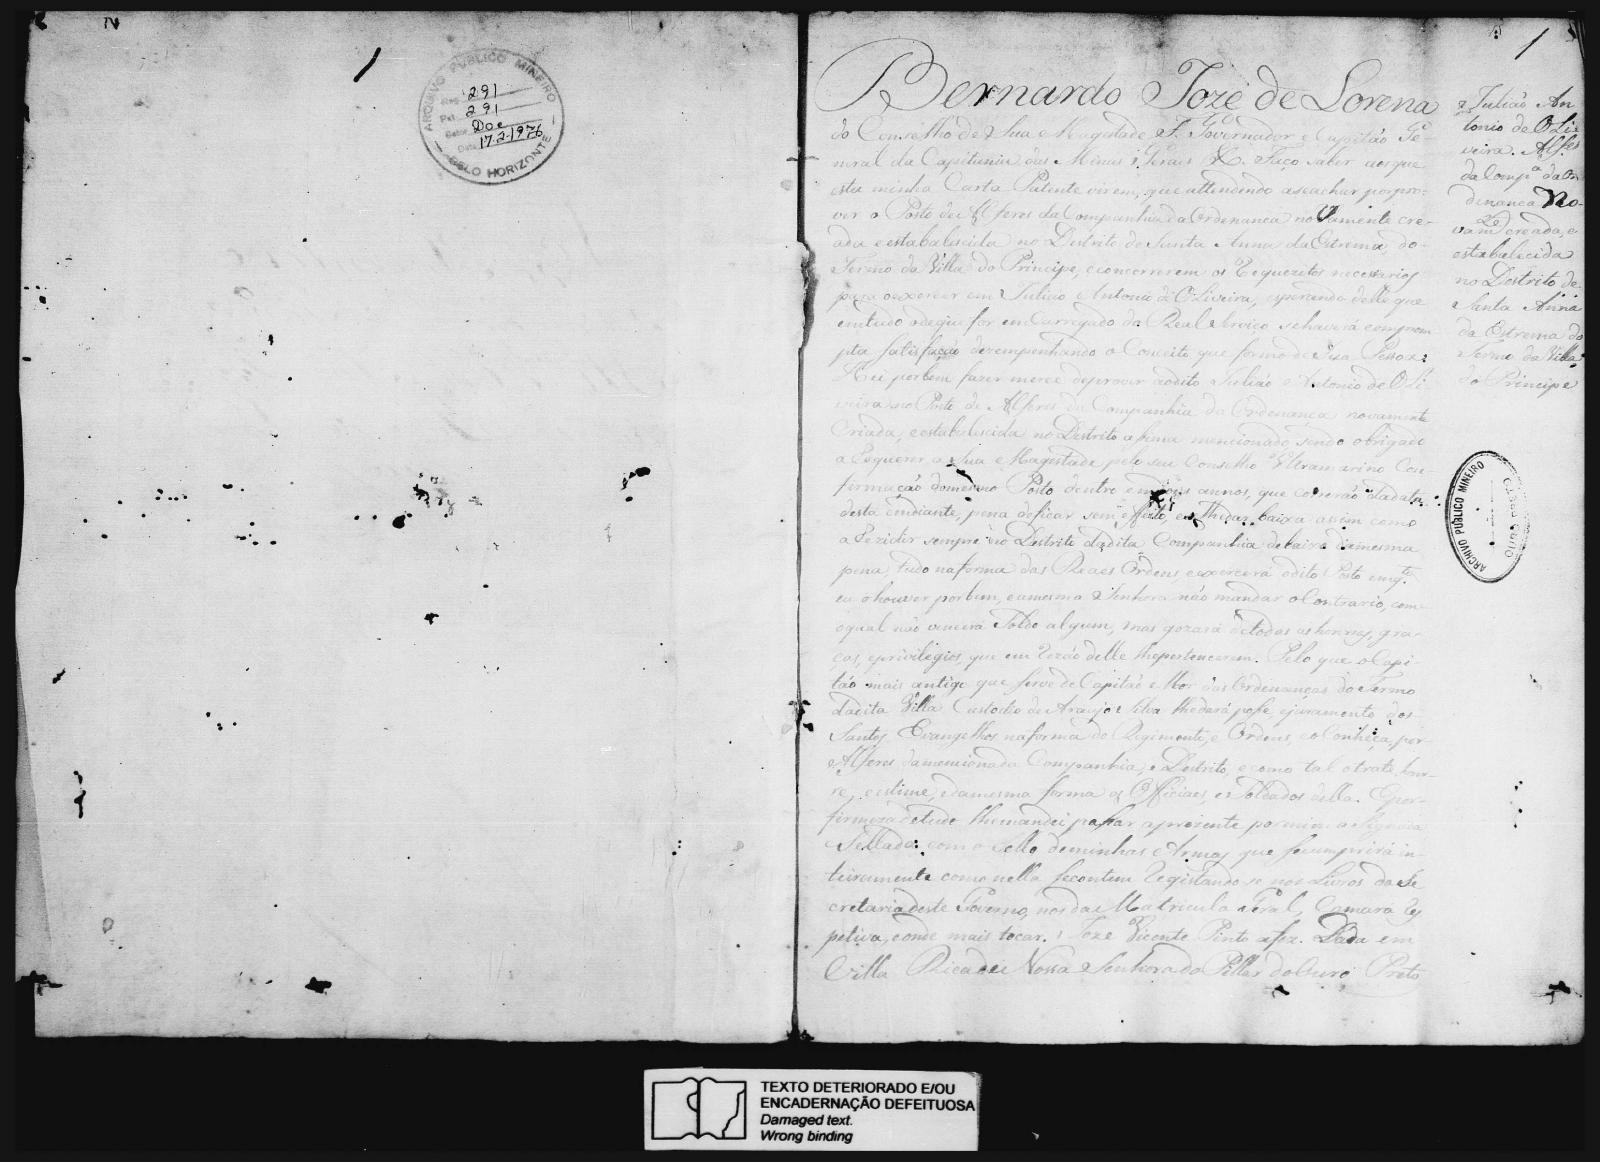 1
ARQUIVO PÚBLICO MINEIRO
291
291
Doc
Data 17-2-1976
BELO HORIZONTE
1
Bernardo Joze de Lorena
do Conselho de Sua Magestade F. Governador e Capitão Ge
neral da Capitania das Minas Geraes &. Faço saber aos que
esta minha Carta Patente virem, que attendendo a se achar por pro=
ver o Posto de Alferes da Companhia da Ordenanca novamente cre-
ada e estabalescida no Destrito de Santa Anna da Estrema, do
Termo da Villa do Principe, e concorrerem os Requezitos necessarios
para o exercer em Julião Antonio de Oliveira, esperando delle que
em tudo o de que for emCarregado do Real Serviço se haverá com prom
pta satisfação dezempenhando o Conceito que formo de Sua Pessoa:
Hei por bem fazer merce de prover ao dito Julião Antonio de Oli
veira no Posto de Alferes da Companhia da Ordenança novamente
Criada, e estabalescida no Destrito a sima mencionado, sendo obrigado
a Requerer a Sua Magestade pelo seu Conselho Ultramarino Con
firmação do mesmo Posto dentro em dois annos, que correrão da data
desta em diante, pena de ficar sem effeito, e se lhe dar baixa assim como
a Rezidir sempre no Destrito da dita Companhia debaixo da mesma
pena, tudo na forma das Reaes Ordens e exercerá o dito Posto emq.to
eu o houver por bem, e a mesma Senhora não mandar o Contrario, com
o qual não vencerá Soldo algum, mas gozará de todas as honras, gra-
ças, e privilegios, que em Rezão delle lhe pertencerem. Pelo que o Capi-
tão mais antigo que serve de Capitão Mor das Ordenanças do Termo
da dita Villa Custodio de Araujo Silva lhe dará posse, e juramento dos
Santos Evangelhos na forma do Regimento, e Ordens, e o Conheça, por
Alferes da mencionada Companhia, e Destrito, e como tal o trate, hon-
re, e estime, e da mesma forma os Officiaes, e Soldados della. E por
firmeza de tudo lhe mandei passar a prezente por mim assignada
Sellada com o Sello de minhas Armas que se cumprirá in-
teiramente como nella se contem Registando-se nos Livros da Se
cretaria deste Governo, nos da Matricula Geral, Camara Res
petiva, e onde mais tocar. Joze Vicente Pinto a fez. Dada em
Villa Rica de Nossa Senhora do Pillar do Ouro Preto
Julião An
tonio de Oli
veira. Alf.es
da Comp.a da Or
dinanca No-
vam.te creada, e
estabalecida
no Destrito de
Santa Anna
da Estrema do
Termo da Villa
do Principe
ARCHIVO PUBLICO MINEIRO
OURO PRETO
TEXTO DETERIORADO E/OU
ENCADERNAÇÃO DEFEITUOSA
Damaged text.
Wrong binding